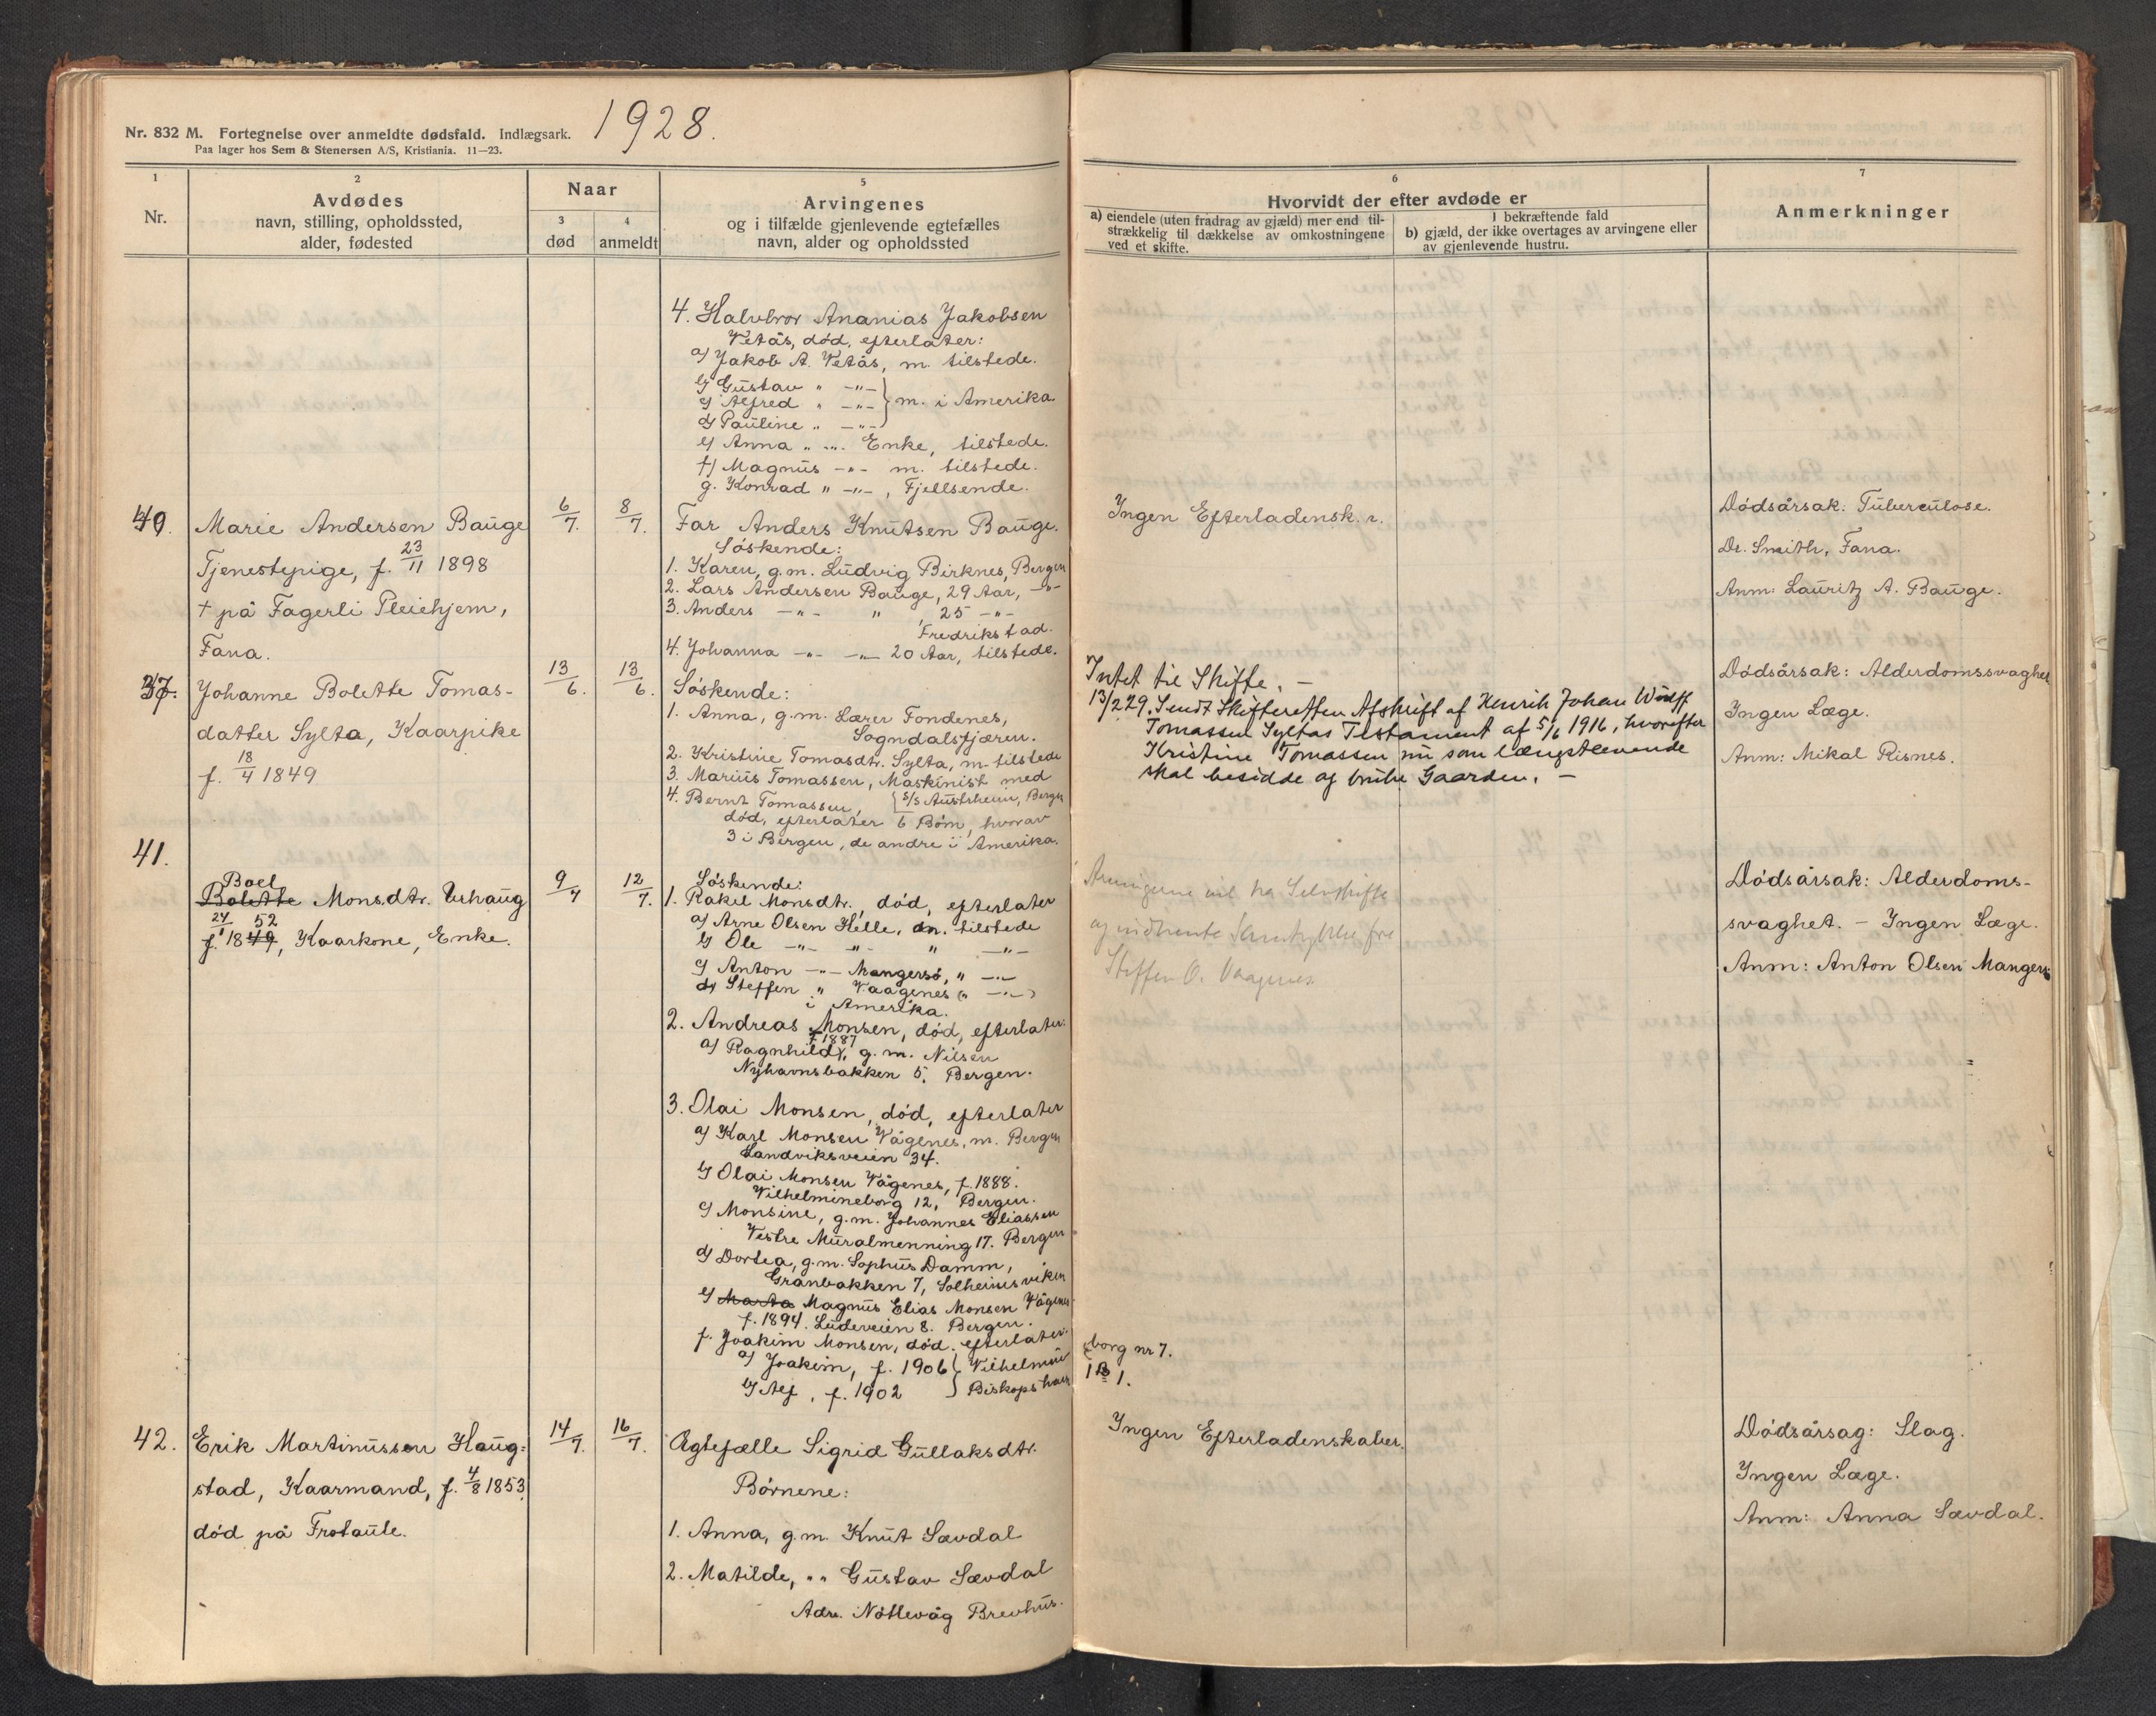 Nr. 832 M. Fortegnelse over anmeldte dødsfald. Indlægsark.
Paa lager hos Sem & Stenersen A/S, Kristiania. 11—23.
1928.
1
Nr.
2
Avdødes
navn, stilling, opholdssted,
alder, fødested
Naar
3
død
4
anmeldt
5
Arvingenes
og i tilfælde gjenlevende egtefælles
navn, alder og opholdssted
6
Hvorvidt der efter avdøde er
a) eiendele (uten fradrag av gjæld) mer end til-
strækkelig til dækkelse av omkostningene
ved et skifte.
I bekræftende fald
b) gjæld, der ikke overtages av arvingene eller
av gjenlevende hustru.
7
Anmerkninger
4. Halvbror Ananias Jakobsen
Vetås, død, efterlater:
a) Jakob A. Vetås, m. tilstede.
b) Gustav " -"-
c) Alfred " -"- } m. i Amerika.
d) Pauline " -"-
e) Anna " -"- Enke, tilstede.
f) Magnus -"- m. tilstede.
g. Konrad " -"-, Fjellsende.
40.
Marie Andersen Bauge
Tjenestepige, f. 23/11 1898
† på Fagerli Pleiehjem,
Fana.
6/7.
8/7.
Far Anders Knutsen Bauge.
Søskende:
1. Karen, g.m. Ludvig Birknes, Bergen
2. Lars Andersen Bauge, 29 Aar, -"-
3. Anders -"- " , 25 -"-
Fredrikstad.
4. Johanna -"- -"- 20 Aar, tilstede.
Ingen Efterladensk. r.
Dødsårsak: Tuberculose.
Dr. Smith, Fana.
Anm: Lauritz A. Bauge.
37.
Johanne Bolette Tomas-
datter Sylta, Kaarpike
f. 18/4 1849
13/6.
13/6.
Søskende:
1. Anna, g.m. Lærer Fondenes,
Sogndalsfjæren.
2. Kristine Tomasdtr. Sylta, m. tilstede
3. Marius Tomassen, Maskinist med
{ s/s Austrheim, Bergen
4. Bernt Tomassen,
død, efterlater 6 Børn, hvorav
3 i Bergen, de andre i Amerika.
Intet til Skifte. —
13/2 29. Sendt Skifteretten Afskrift af Henrik Johan Wulff
Tomassen Syltas Testament af 5/6 1916, hvorefter
Kristine Tomassen nu som længstlevende
skal besidde og bruke Gaarden. —
Dødsårsak: Alderdomssvaghet
Ingen Læge.
Anm: Mikal Risnes.
41.
Boel
Bolette Monsdtr. Urhaug
f. 24/1 1849 52, Kaarkone, Enke.
9/7
12/7.
Søskende:
1. Rakel Monsdtr., død, efterlater
a) Arne Olsen Helle, m. tilstede
b) Ole -"- -"- " -"-
c) Anton -"- Mangersø, " -"-
d) Steffen " Vaagenes (" -"-)
i Amerika.
2. Andreas Monsen, død, efterlater:
f. 1887
a) Ragnhild, g.m. Nilsen
Nyhavnsbakken 5, Bergen.
3. Olai Monsen, død, efterlater
a) Karl Monsen Vågenes, m. Bergen
Sandviksveien 34.
b) Olai Monsen Vågenes, f. 1888.
Vilhelmineborg 12, Bergen.
c) Monsine, g.m. Johannes Eliassen
Vestre Muralmenning 17. Bergen
d) Dortea, g.m. Sophus Damm,
Granbakken 7, Solheimsviken
e) Marta Magnus Elias Monsen Vågenes
f. 1894. Ludeveien 8. Bergen.
f. Joakim Monsen, død. efterlater:
a) Joakim, f. 1906 { Vilhelmine
borg nr 7.
b) Alf, f. 1902 } Biskopshavn
1 B 1.
Arvingerne vil ha Selvskifte
og indhente Samtykke fra
Steffen O. Vaagenes
Dødsårsak: Alderdoms-
svaghet. — Ingen Læge.
Anm: Anton Olsen Mangersø
42.
Erik Martinussen Haug-
stad, Kaarmand, f. 4/8 1853
død på Frotaule.
14/7.
16/7.
Ægtefælle Sigrid Gullaksdtr.
Børnene:
1. Anna, g.m. Knut Sævdal
2. Matilde, " " Gustav Sævdal
Adr. Nåttevåg Brevhus.
Ingen Efterladenskaber.
Dødsårsag: Slag.
Ingen Læge.
Anm: Anna Sævdal.